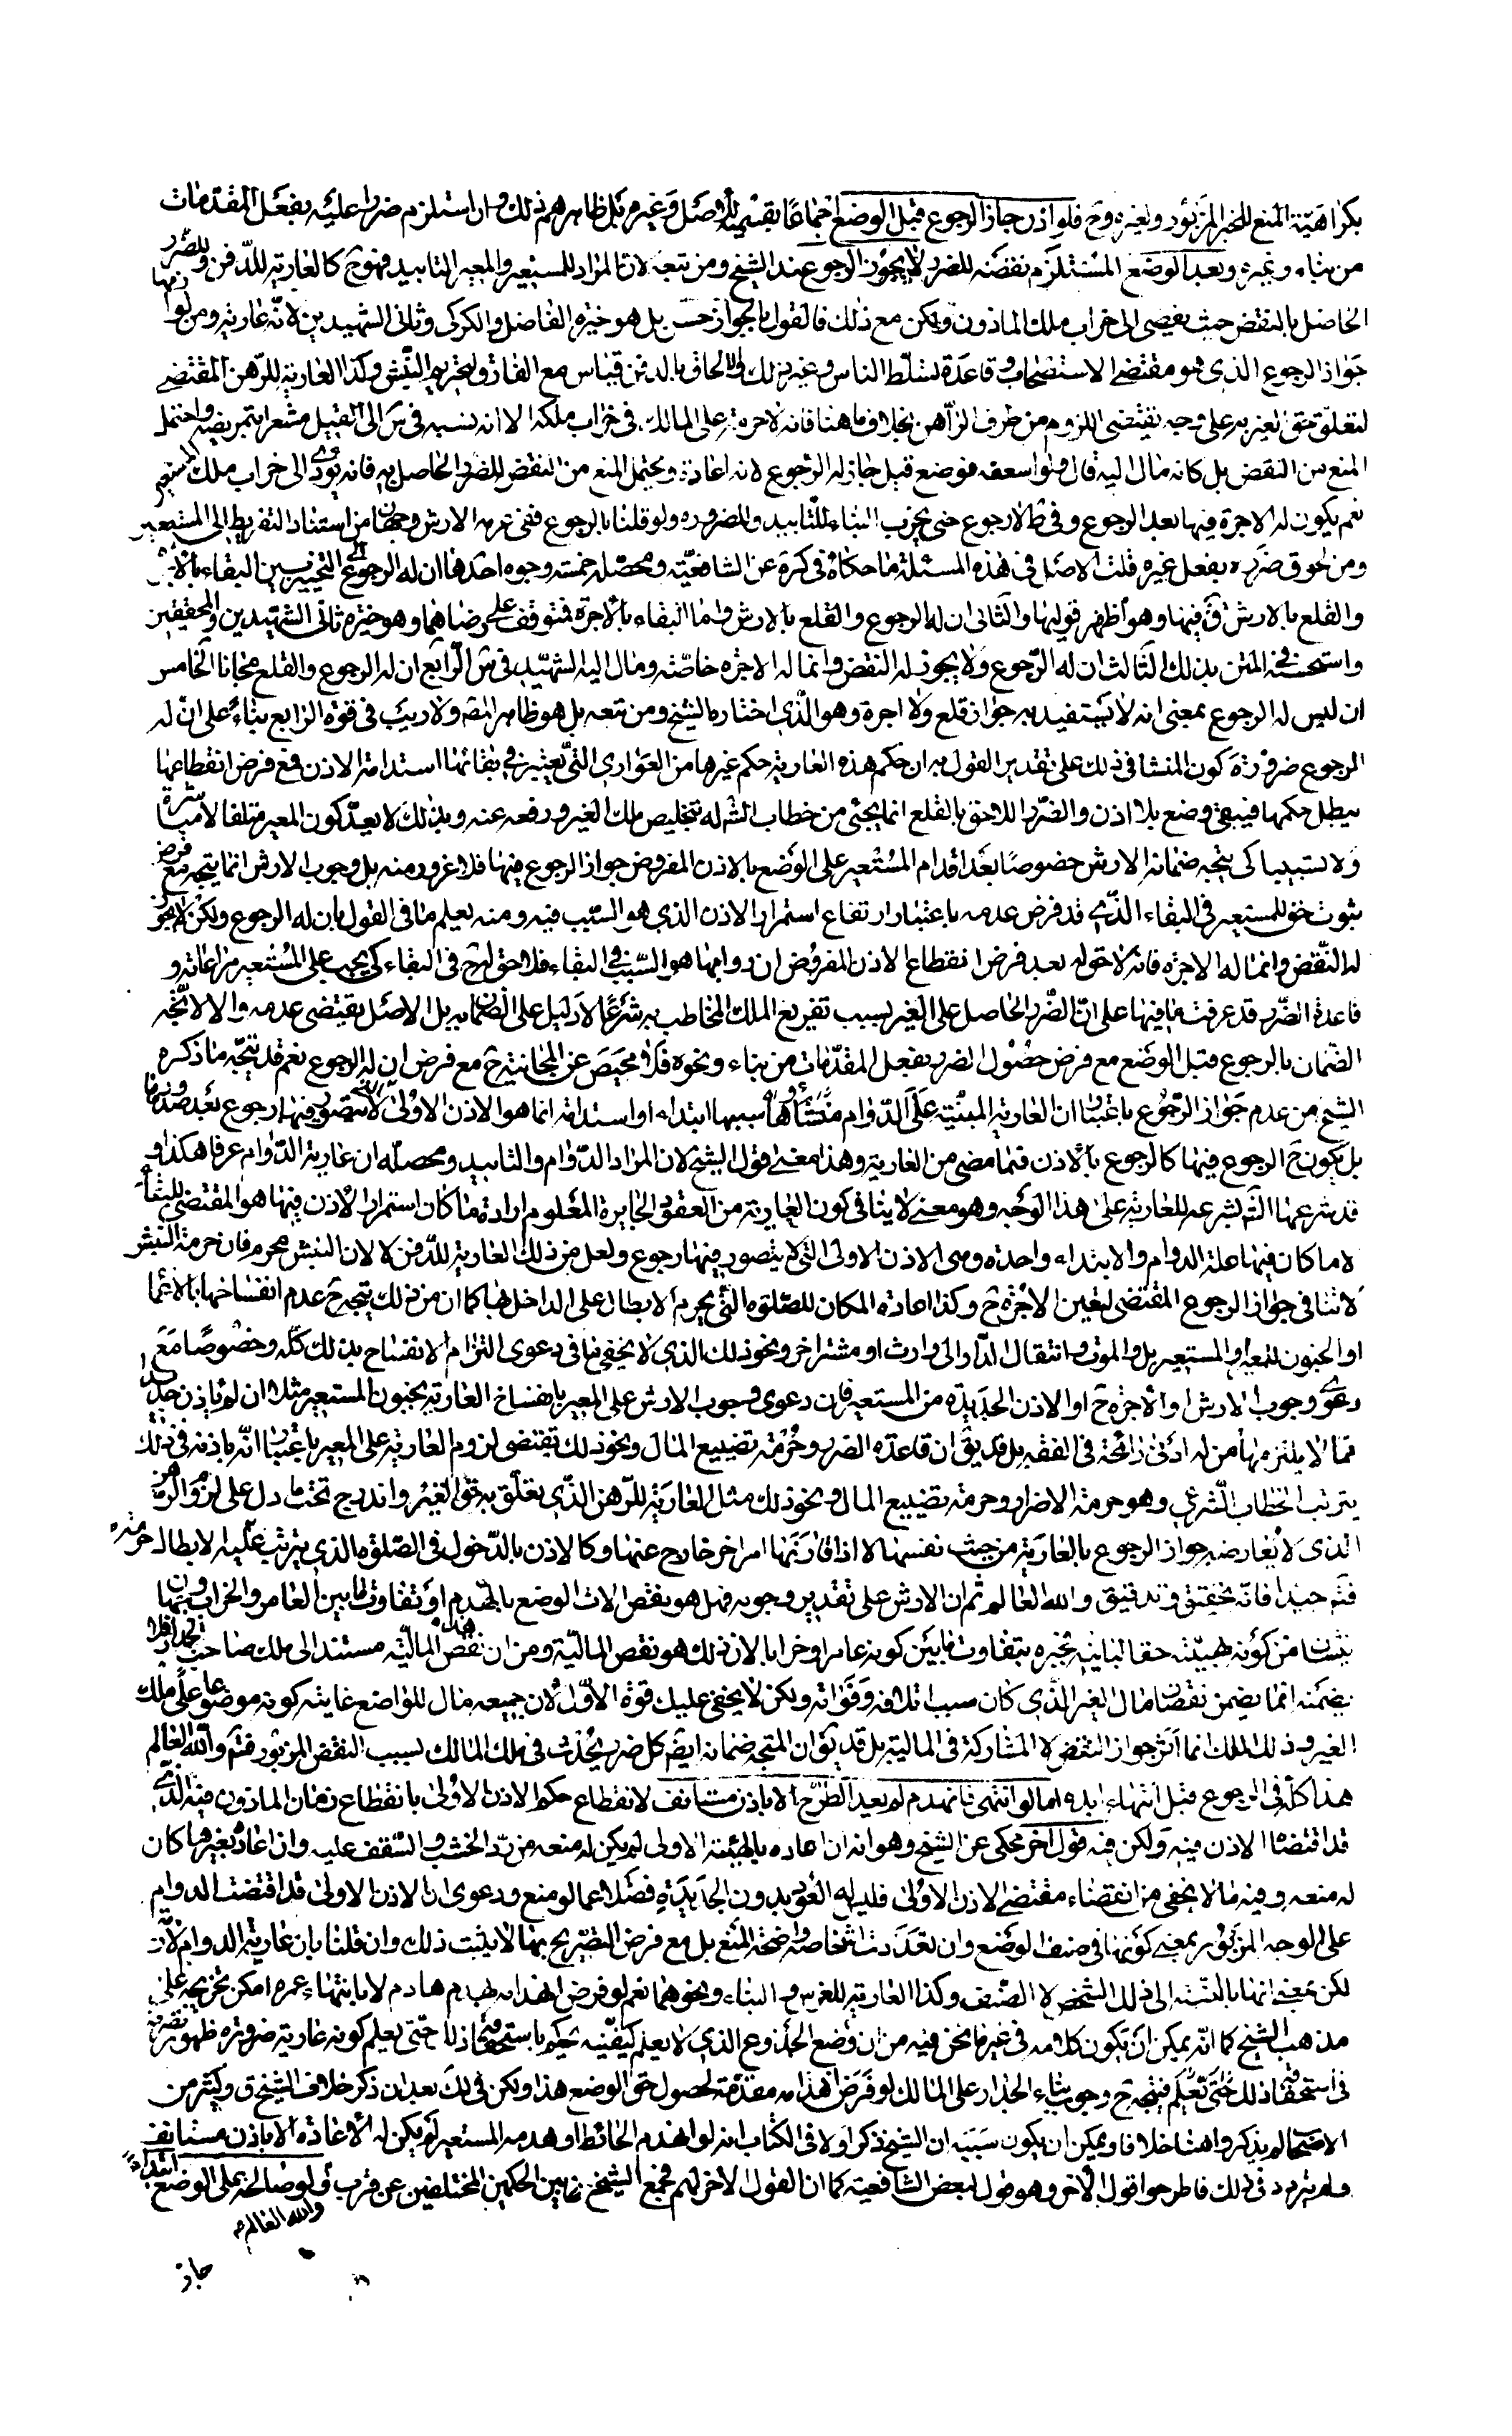 بكراهية المنع للخبر المزبور وغيره وح فلو اذن جاز الرجوع قبل الوضع اجماعا بقسميه للاصل وغيره بل ظاهرهم ذلك وان استلزم ضررا عليه بفعل المقدمات
من بناء وغيره وبعد الوضع المستلزم نقضه للضرر لا يجوز الرجوع عند الشيخ ومن تبعه لان المراد للمستعير والمعير التابيد فهو ح كالعارية للدفن وللضرر
الحاصل بالنقض حيث يفضى الى خراب ملك الماذون ولكن مع ذلك فالقول بالجواز حسن بل هو خيرة الفاضل والكركى وثانى الشهيدين لانه عارية ومن لوازمها
جواز الرجوع الذى هو مقتضى الاستصحاب وقاعدة تسلط الناس وغير ذلك والالحاق بالدفن قياس مع الفارق لتحريم النبش وكذا العارية للرهن المقتضى
لتعلق حق الغير به على وجه يقتضى اللزوم من طرف الراهن بخلاف ما هنا فانه لا حرمة على المالك فى خراب ملكه الا انه نسبه فى س الى القيل مشعرا بتمريضه واحتمل
المنع من النقض بل كانه مال اليه قال ولو اسعفه فوضع قبل جاز له الرجوع لانه اعادة ويحتمل المنع من النقض للضرر الحاصل به فانه يودى الى خراب ملك المستعير
نعم يكون له الاجرة فيما بعد الرجوع وفى ط لا رجوع حتى يخرب البناء للتابيد والضرورة ولو قلنا بالرجوع ففى غرمه الارش وجهان من استناد التفريط الى المستعير
ومن لحوق ضرره بفعل غيره قلت الاصل فى هذه المسئلة ما حكاه فى كرة عن الشافعية ومحصله خمسة وجوه احدها ان له الرجوع مع التخيير بين البقاء بالاجرة
والقلع بالارش ق فيها وهو اظهر قوليها والثانى ان له الرجوع والقلع بالارش واما البقاء بالاجرة فتوقف على رضاهما وهو خيرة ثانى الشهيدين والمحققين
واستحسنه فى المتن بذلك الثالث ان له الرجوع ولا يجوز له النقض وانما له الاجرة خاصة ومال اليه الشهيد فى س الرابع ان له الرجوع والقلع مجانا الخامس
ان ليس له الرجوع بمعنى انه لا يستفيد به جواز قلع ولا اجرة وهو الذى اختاره الشيخ ومن تبعه بل هو ظاهر المص ولا ريب فى قوة الرابع بناء على ان له
الرجوع ضرورة كون المنشا فى ذلك على تقدير القول به ان حكم هذه العارية حكم غيرها من العوارى التى يعتبر فى بقائها استدامة الاذن فمع فرض انقطاعها
يبطل حكمها فيبقى وضع بلا اذن والضرر اللاحق بالقلع انما يجئ من خطاب الشه له بتخليص ملك الغير ورفعه عنه وبذلك لا يعد كون المعير متلفا لا مباشرة
ولا تسبيبا كى يتجه ضمانه الارش خصوصا بعد اقدام المستعير على الوضع بالاذن المفروض جواز الرجوع فيها فلا غرور منه بل وجوب الارش انما يتجه مع فرض
ثبوت حق للمستعير فى البقاء الذى قد فرض عدمه باعتبار ارتفاع استمرار الاذن الذى هو السبب فيه ومنه يعلم ما فى القول بان له الرجوع ولكن لا يجوز
له النقض وانما له الاجرة فانه لا حق له بعد فرض انقطاع الاذن المفروض ان دوامها هو السبب فى البقاء فلا حق له ح فى البقاء كى يجب على المستعير مراعاته و
قاعدة الضرر قد عرفت ما فيها على ان الضرر الحاصل على الغير بسبب تفريع الملك المخاطب به شرعا لا دليل على الضمان به بل الاصل يقتضى عدمه والا لاتجه
الضمان بالرجوع قبل الوضع مع فرض حصول الضرر بفعل المقدمات من بناء ونحوه فلا محيص عن المجانية ح مع فرض ان له الرجوع نعم قد يتجه ما ذكره
الشيخ من عدم جواز الرجوع باعتبار ان العارية المبنية على الدوام منشاها وسببها ابتداء او استدامة انما هو الاذن الاولى التى لا يتصور فيها رجوع بعد صدورها
بل يكون ح الرجوع فيها كالرجوع بالاذن فيما مضى من العارية وهذا معنى قول الشيخ لان المراد الدوام والتابيد ومحصله ان عارية الدوام عرفا هكذا و
قد شرعها الشه لشرعه للعارية على هذا الوجه وهو معنى لا ينافى كون العارية من العقود الجايزة المعلوم ارادة ما كان استمرار الاذن فيها هو المقتضى للبقاء
لا ما كان فيها علة الدوام والابتداء واحدة وهى الاذن الاولى التى لا يتصور فيها رجوع ولعل من ذلك العارية للدفن لا لان النبش محرم فان حرمة النبش
لا تنافى جواز الرجوع المقتضى لتعين الاجرة ح وكذا اعادة المكان للصلوة التى يحرم الابطال على الداخل بها كما ان من ذلك يتجه ح عدم انفساخها بالاغماء
او الجنون للمعير او المستعير بل والموت وانتقال الدار الى وارث او مشتر اخر ونحو ذلك الذى لا يخفى ما فى دعوى التزام الانفساخ بذلك كله وخصوصا مع
دعوى وجوب الارش او الاجرة ح او الاذن الجديدة من المستعير فان دعوى وجوب الارش على المعير بانفساخ العارية بجنون المستعير مثلا ان لم ياذن جديدا
مما لا يلتزم بها من له ادنى رائحة فى الفقه بل قد يق ان قاعدة الضرر وحرمة تضييع المال ونحو ذلك تقتضى لزوم العارية على المعير باعتبار انه باذنه فى ذلك
يترتب الخطاب الشرعى وهو حرمة الاضرار وحرمة تضييع المال ونحو ذلك مثل العارية للرهن الذى يتعلق به حق الغير واندرج تحت ما دل على لزوم الرهن
الذى لا يعارضه جواز الرجوع بالعارية من حيث نفسها لا اذا قارنها امر اخر خارج عنها وكالاذن بالدخول فى الصلوة الذى يترتب عليه الابطال حرمته
فتم جيدا فانه تحقيق وتدقيق والله العالم ثم ان الارش على تقدير وجوبه فهل هو نقص الات الوضع بالهدم او تفاوت ما بين العامر والخراب وجهان
ينشئان من كونه بهيئته حقا لبانيه فجبره بتفاوت ما بين كونه عامرا وخرابا لان ذلك هو نقص المالية ومن ان نقص هذه المالية مستند الى ملك صاحب الجدار فلا
يضمنه انما يضمن نقصان مال الغير الذى كان سبب اتلافه وفواته ولكن لا يخفى عليك قوة الاول لان جميعه مال للواضع غايته كونه موضوعا على ملك
الغير وذلك الملك انما اثر جواز النقض لا المشاركة فى المالية بل قد يق ان المتجه ضمانه ايضا كل ضرر يحدث فى ملك المالك بسبب النقض المزبور فتم والله العالم
هذا كله فى الرجوع قبل انتهاء ابده اما لو انتهى بان انهدم لم يعد الطرح الا باذن مستانف لانقطاع حكم الاذن الاولى بانقطاع زمان الماذون فيه الذى
قد اقتضاها الاذن فيه ولكن فيه قول اخر محكى عن الشيخ وهو انه ان اعاده بالهيئة الاولى لم يكن له منعه من رد الخشب والسقف عليه وان اعاده بغيرها كان
له منعه وفيه ما لا يخفى من انقضاء مقتضى الاذن الاولى فليس له العود بدون الجديدة فضلا عما لو منع ودعوى ان الاذن الاولى قد اقتضت الدوام
على الوجه المزبور بمعنى كونها فى صنف الوضع وان تعددت اشخاصه واضحة المنع بل مع فرض التصريح بها لا يثبت ذلك وان قلنا بان عارية الدوام لازمة
لكن بمعنى انها بالنسبة الى ذلك الشخص لا الصنف وكذا العارية للغرس والبناء ونحوهما نعم لو فرض انهدامه بهدم هادم لا بانتهاء عمره امكن تخريجه على
مذهب الشيخ كما انه يمكن ان يكون كلامه فى غير ما نحن فيه من ان وضع الجذوع الذى لا يعلم كيفيته يحكم باستحقاق ذلك حتى يعلم كونه عارية ضرورة ظهور تصرفه
فى استحقاقه ذلك حتى تعلم فيتجه ح وجوب بناء الجدار على المالك لو فرض انهدامه مقدمة لحصول حق الوضع هذا ولكن فى لك بعد ان ذكر خلاف الشيخ ق وكثير من
الاصحاب لم يذكروا هنا خلافا ويمكن ان يكون سببه ان الشيخ ذكر اولا فى الكتاب انه لو انهدم الحائط او هدمه المستعير لم يكن له الاعادة الا باذن مستانف
ولم يتردد فى ذلك فاطرحوا قول الاخر وهو قول لبعض الشافعية كما ان القول الاخر لهم فجمع الشيخ ما بين الحكمين المختلفين عن قرب ولو صالحه على الوضع ابتداء
والله العالم
جاز